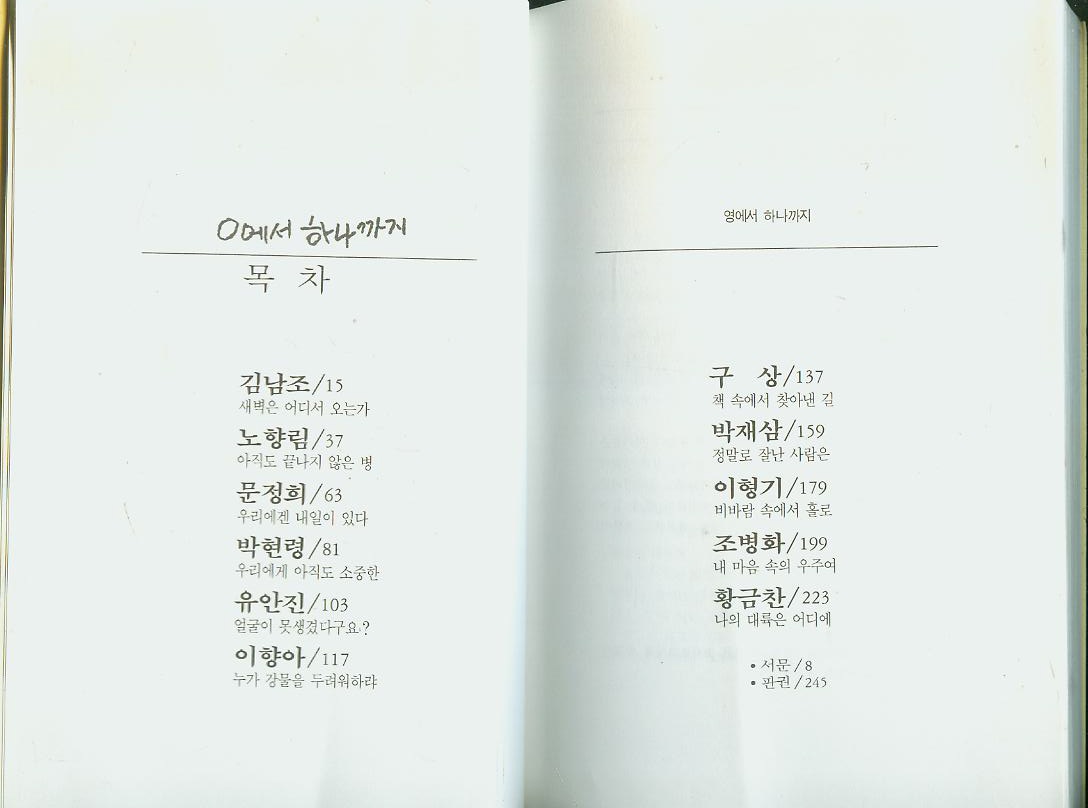 0에서 하나까지
목 차
김남조/15
새벽은 어디서 오는가
노향림/37
아직도 끝나지 않은 병
문정희/63
우리에겐 내일이 있다
박현령/81
우리에게 아직도 소중한
유안진/103
얼굴이 못생겼다구요?
이향아/117
누가 강물을 두려워하랴
영에서 하나까지
구 상/137
책 속에서 찾아낸 길
박재삼/159
정말로 잘난 사람은
이형기/179
비바람 속에서 홀로
조병화/199
내 마음 속의 우주여
황금찬/223
나의 대륙은 어디에
• 서문/8
• 판권/245